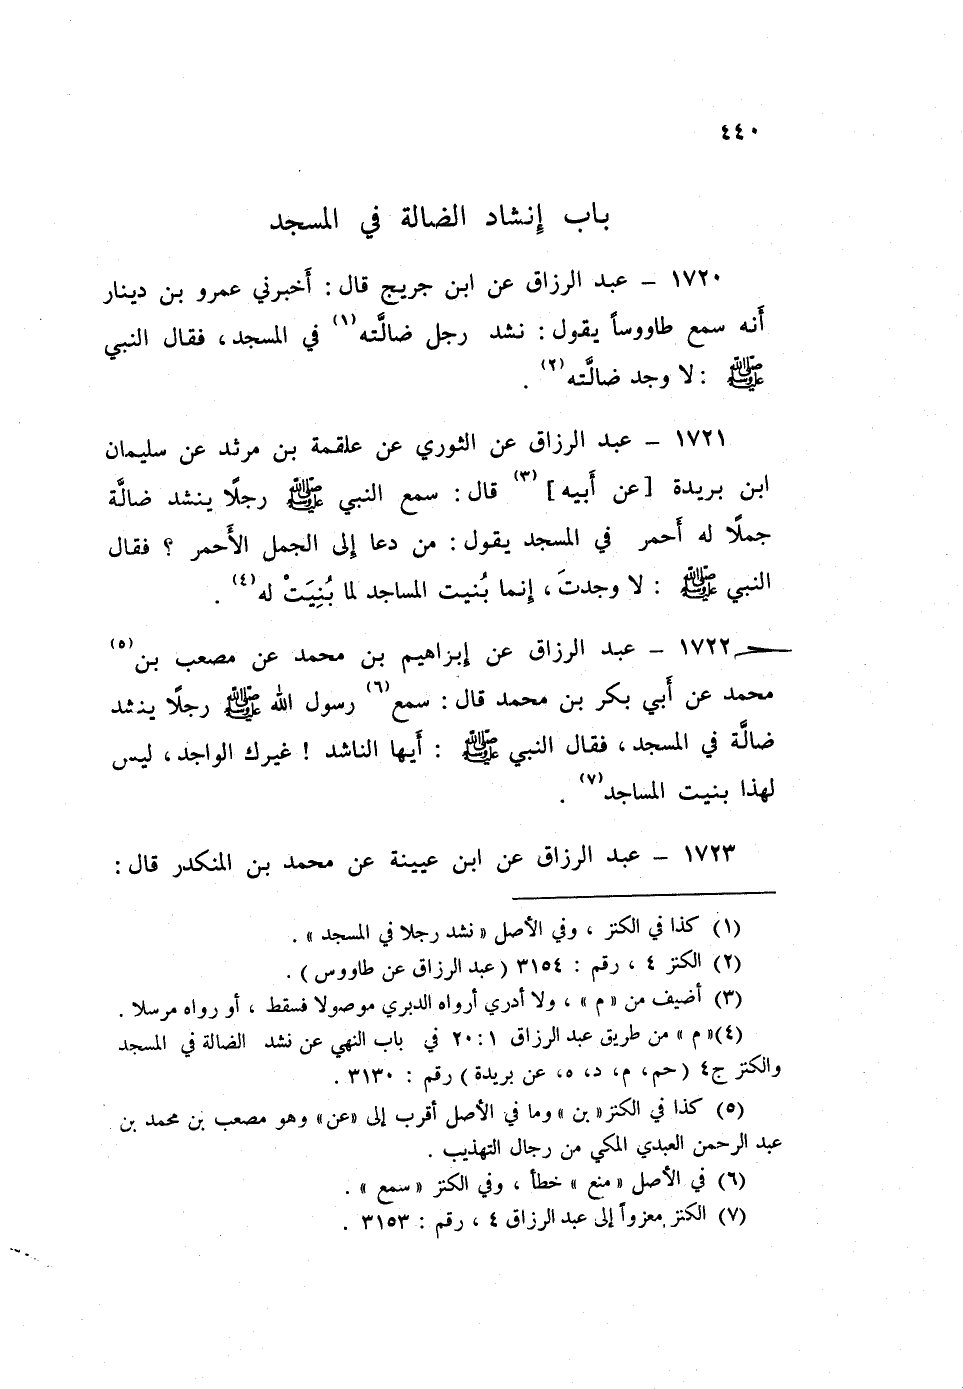 ٤٤٠
باب إنشاد الضالة في المسجد
١٧٢٠ – عبد الرزاق عن ابن جريج قال: أَخبرني عمرو بن دينار
أَنه سمع طاووساً يقول: نشد رجل ضالَّته(١) في المسجد، فقال النبي
ﷺ : لا وجد ضالَّته(٢) .
١٧٢١ – عبد الرزاق عن الثوري عن علقمة بن مرثد عن سليمان
ابن بريدة [عن أَبيه](٣) قال: سمع النبي ﷺ رجلًا ينشد ضالَّة
جملًا له أَحمر في المسجد يقول: من دعا إلى الجمل الأَحمر ؟ فقال
النبي ﷺ : لا وجدتَ، إنما بُنيت المساجد لما بُنِيَتْ له(٤) .
١٧٢٢ – عبد الرزاق عن إبراهيم بن محمد عن مصعب بن(٥)
محمد عن أَبي بكر بن محمد قال: سمع(٦) رسول الله ﷺ رجلًا ينشد
ضالَّة في المسجد، فقال النبي ﷺ : أَيها الناشد ! غيرك الواجد، ليس
لهذا بنيت المساجد(٧) .
١٧٢٣ – عبد الرزاق عن ابن عيينة عن محمد بن المنكدر قال:
(١) كذا في الكنز ، وفي الأصل «نشد رجلا في المسجد» .
(٢) الكنز ٤ ، رقم : ٣١٥٤ (عبد الرزاق عن طاووس) .
(٣) أضيف من «م» ، ولا أدري أرواه الدبري موصولا فسقط ، أو رواه مرسلا .
(٤) «م» من طريق عبد الرزاق ١ : ٢٠ في باب النهي عن نشد الضالة في المسجد
والكنز ج٤ (حم، م، د، ه، عن بريدة) رقم : ٣١٣٠ .
(٥) كذا في الكنز «بن» وما في الأصل أقرب إلى «عن» وهو مصعب بن محمد بن
عبد الرحمن العبدي المكي من رجال التهذيب .
(٦) في الأصل «منع» خطأ ، وفي الكنز «سمع» .
(٧) الكنز معزواً إلى عبد الرزاق ٤ ، رقم : ٣١٥٣ .